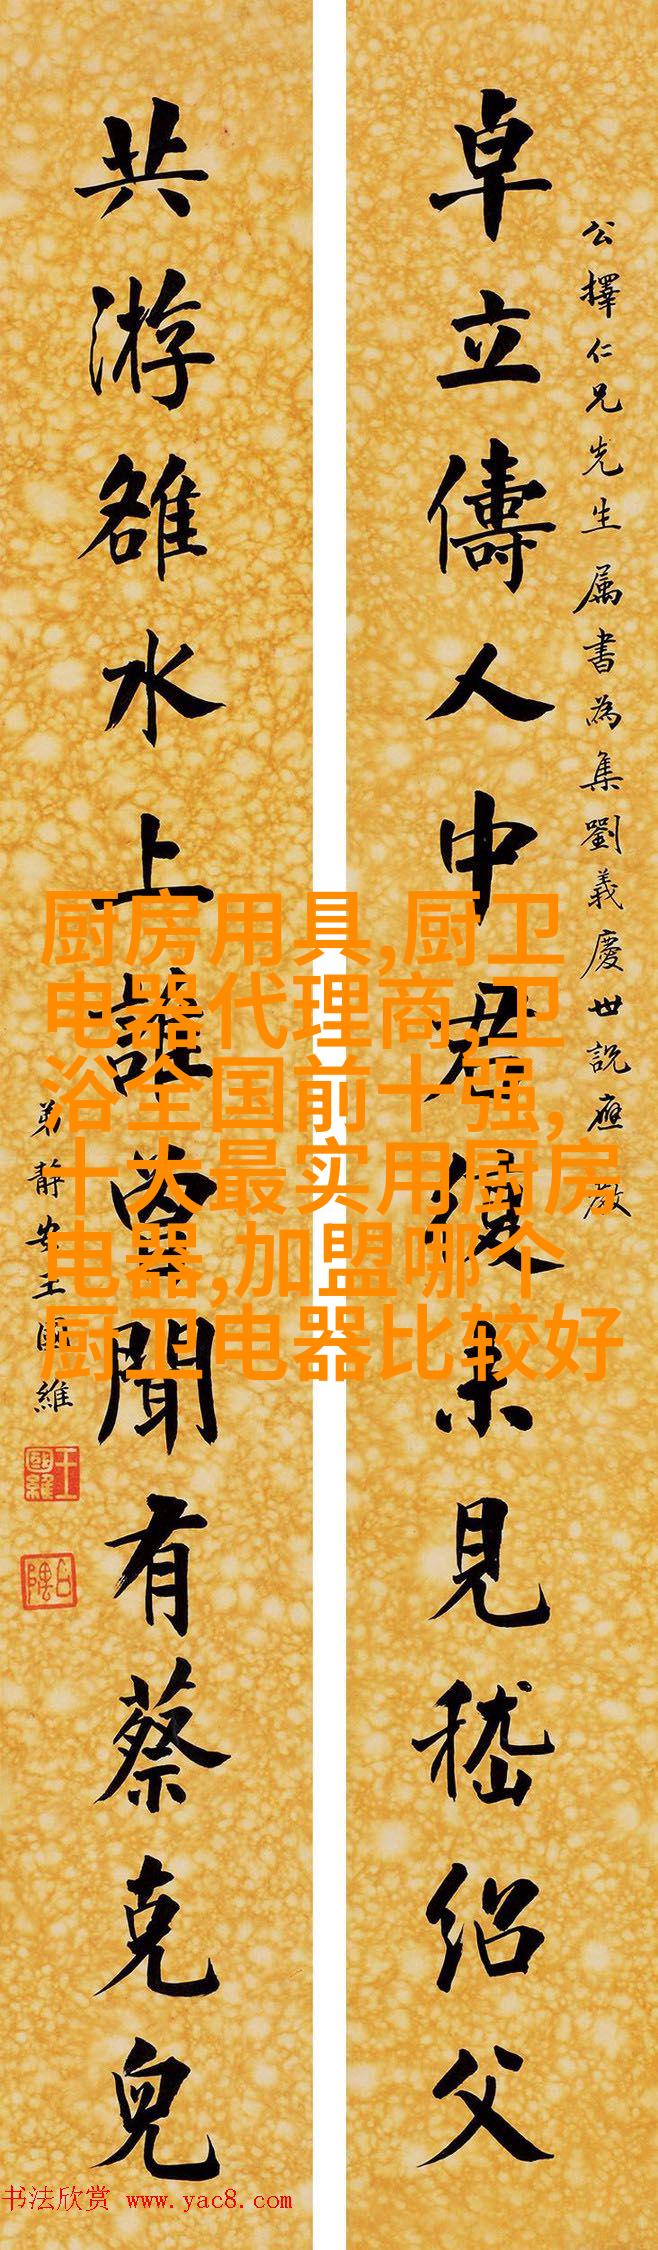 公擇仁兄先生属書為集劉義慶世說應教
卓立儔人中君復未見嵇紹父
共游雒水上誰曾聞有蔡克兒
弟靜安王國維
王國維
厨房用具,厨卫
电器代理商,卫
浴全国前十强,
十大最实用厨房
电器,加盟哪个
厨卫电器比较好
书法欣赏 www.yac8.com